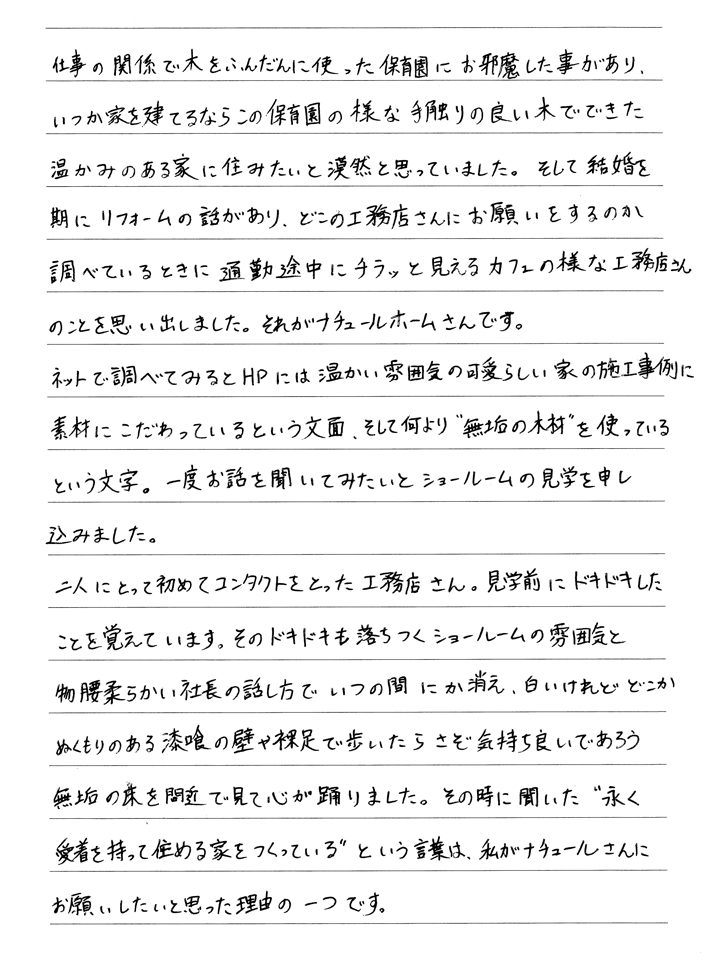 仕事の関係で木をふんだんに使った保育園にお邪魔した事があり、
いつか家を建てるならこの保育園の様な手触りの良い木でできた
温かみのある家に住みたいと漠然と思っていました。そして結婚を
期にリフォームの話があり、どこの工務店さんにお願いをするのか
調べているときに通勤途中にチラッと見えるカフェの様な工務店さん
のことを思い出しました。それがナチュールホームさんです。
ネットで調べてみるとHPには温かい雰囲気の可愛らしい家の施工事例に
素材にこだわっているという文面、そして何より“無垢の木材”を使っている
という文字。一度お話を聞いてみたいとショールームの見学を申し
込みました。
二人にとって初めてコンタクトをとった工務店さん。見学前にドキドキした
ことを覚えています。そのドキドキも落ちつくショールームの雰囲気と
物腰柔らかい社長の話し方でいつの間にか消え、白いけれどどこか
ぬくもりのある漆喰の壁や裸足で歩いたらさぞ気持ち良いであろう
無垢の床を間近で見て心が踊りました。その時に聞いた“永く
愛着を持って住める家をつくっている”という言葉は、私がナチュールさんに
お願いしたいと思った理由の一つです。